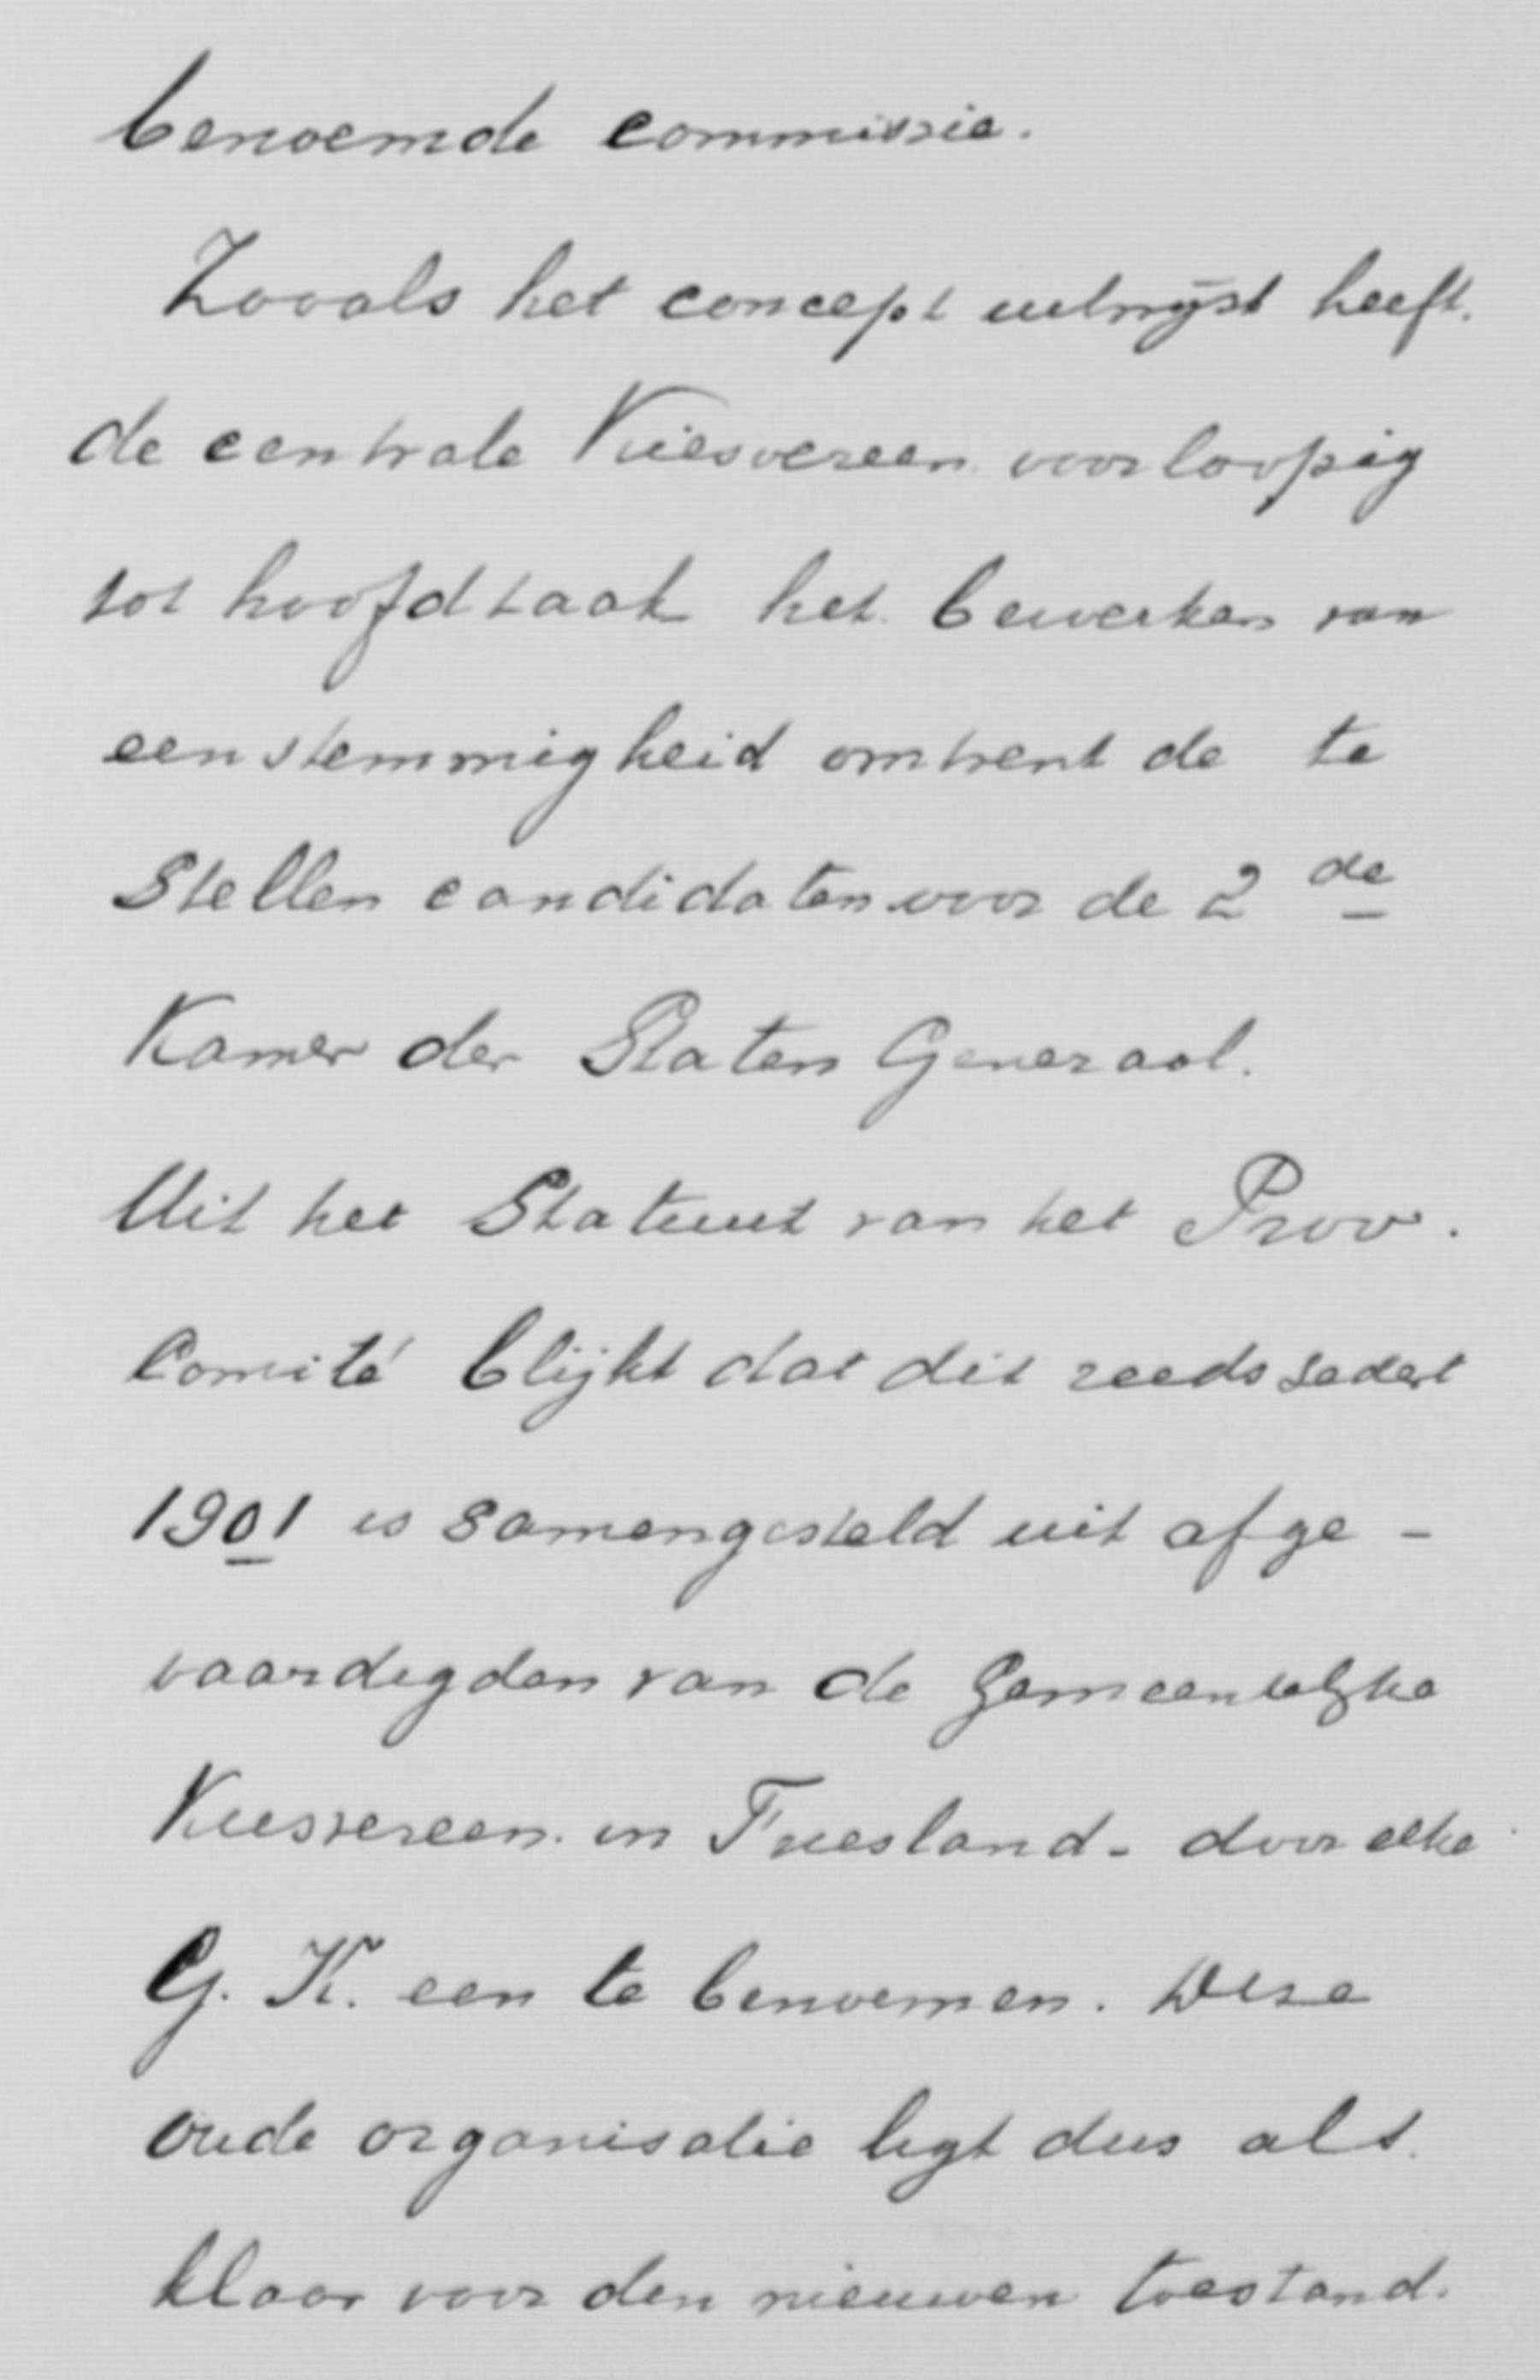 benoemde commissie.
Zooals het concept uitwijst heeft.
de centrale Kiesvereen. voorloopig
tot hoofdtaak het bewerken van
eenstemmigheid omtrent de te
Stellen candidaten voor de 2 de
Kamer der Staten Generaal.
Uit het Statuut van het Prov.
Comité blijkt dat dit reeds sedert
1901 is samengesteld uit afge-
vaardigden van de Gemeentelijke
Kiesvereen. in Friesland. door elke
G. K. een te benoemen. Deze
oude organisatie ligt dus als
klaar voor den nieuwen toestand.